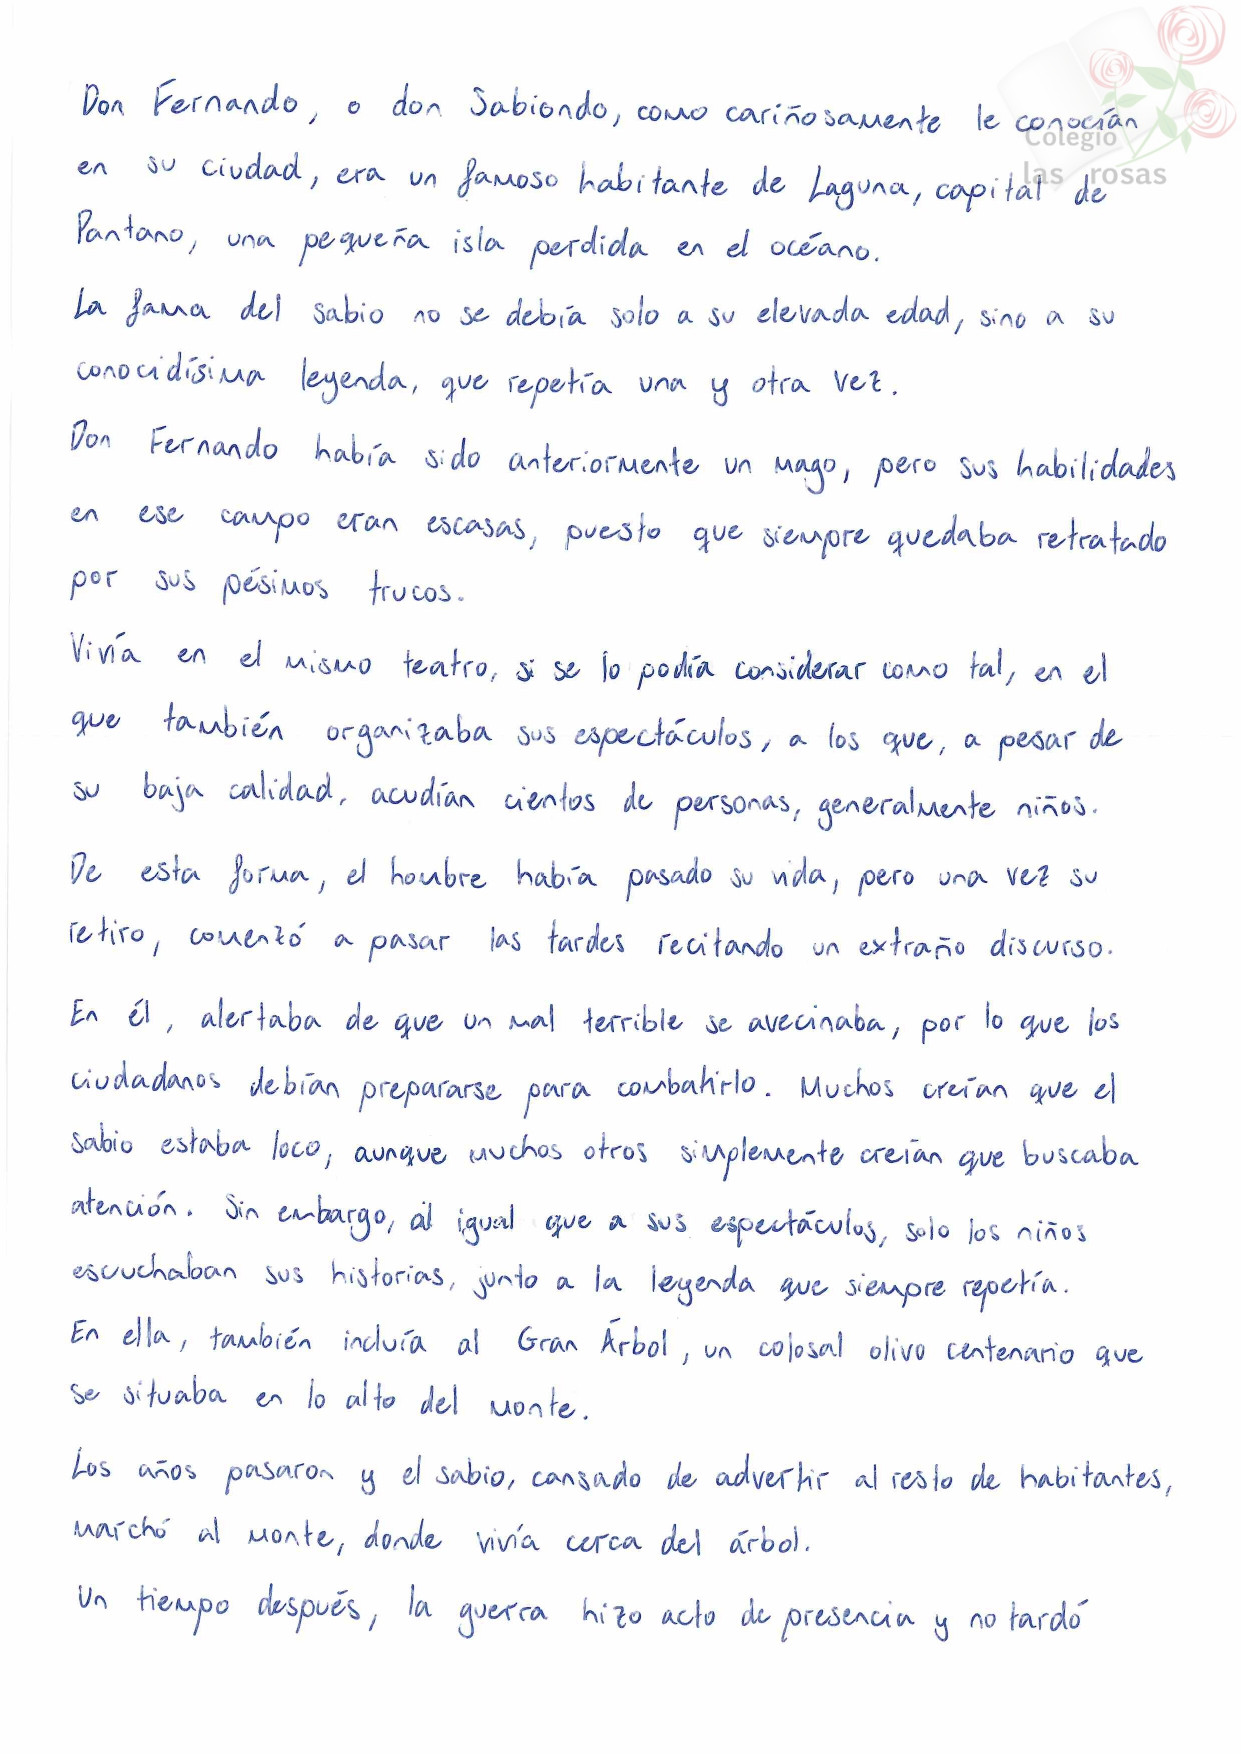 Colegio
las rosas
Don Fernando, o don Sabiondo, como cariñosamente le conocían
en su ciudad, era un famoso habitante de Laguna, capital de
Pantano, una pequeña isla perdida en el océano.
La fama del sabio no se debía solo a su elevada edad, sino a su
conocidísima leyenda, que repetía una y otra vez.
Don Fernando había sido anteriormente un mago, pero sus habilidades
en ese campo eran escasas, puesto que siempre quedaba retratado
por sus pésimos trucos.
Vivía en el mismo teatro, si se lo podía considerar como tal, en el
que también organizaba sus espectáculos, a los que, a pesar de
su baja calidad, acudían cientos de personas, generalmente niños.
De esta forma, el hombre había pasado su vida, pero una vez su
retiro, comenzó a pasar las tardes recitando un extraño discurso.
En él, alertaba de que un mal terrible se avecinaba, por lo que los
ciudadanos debían prepararse para combatirlo. Muchos creían que el
sabio estaba loco, aunque muchos otros simplemente creían que buscaba
atención. Sin embargo, al igual que a sus espectáculos, solo los niños
escuchaban sus historias, junto a la leyenda que siempre repetía.
En ella, también incluía al Gran Árbol, un colosal olivo centenario que
se situaba en lo alto del monte.
Los años pasaron y el sabio, cansado de advertir al resto de habitantes,
marchó al monte, donde vivía cerca del árbol.
Un tiempo después, la guerra hizo acto de presencia y no tardó